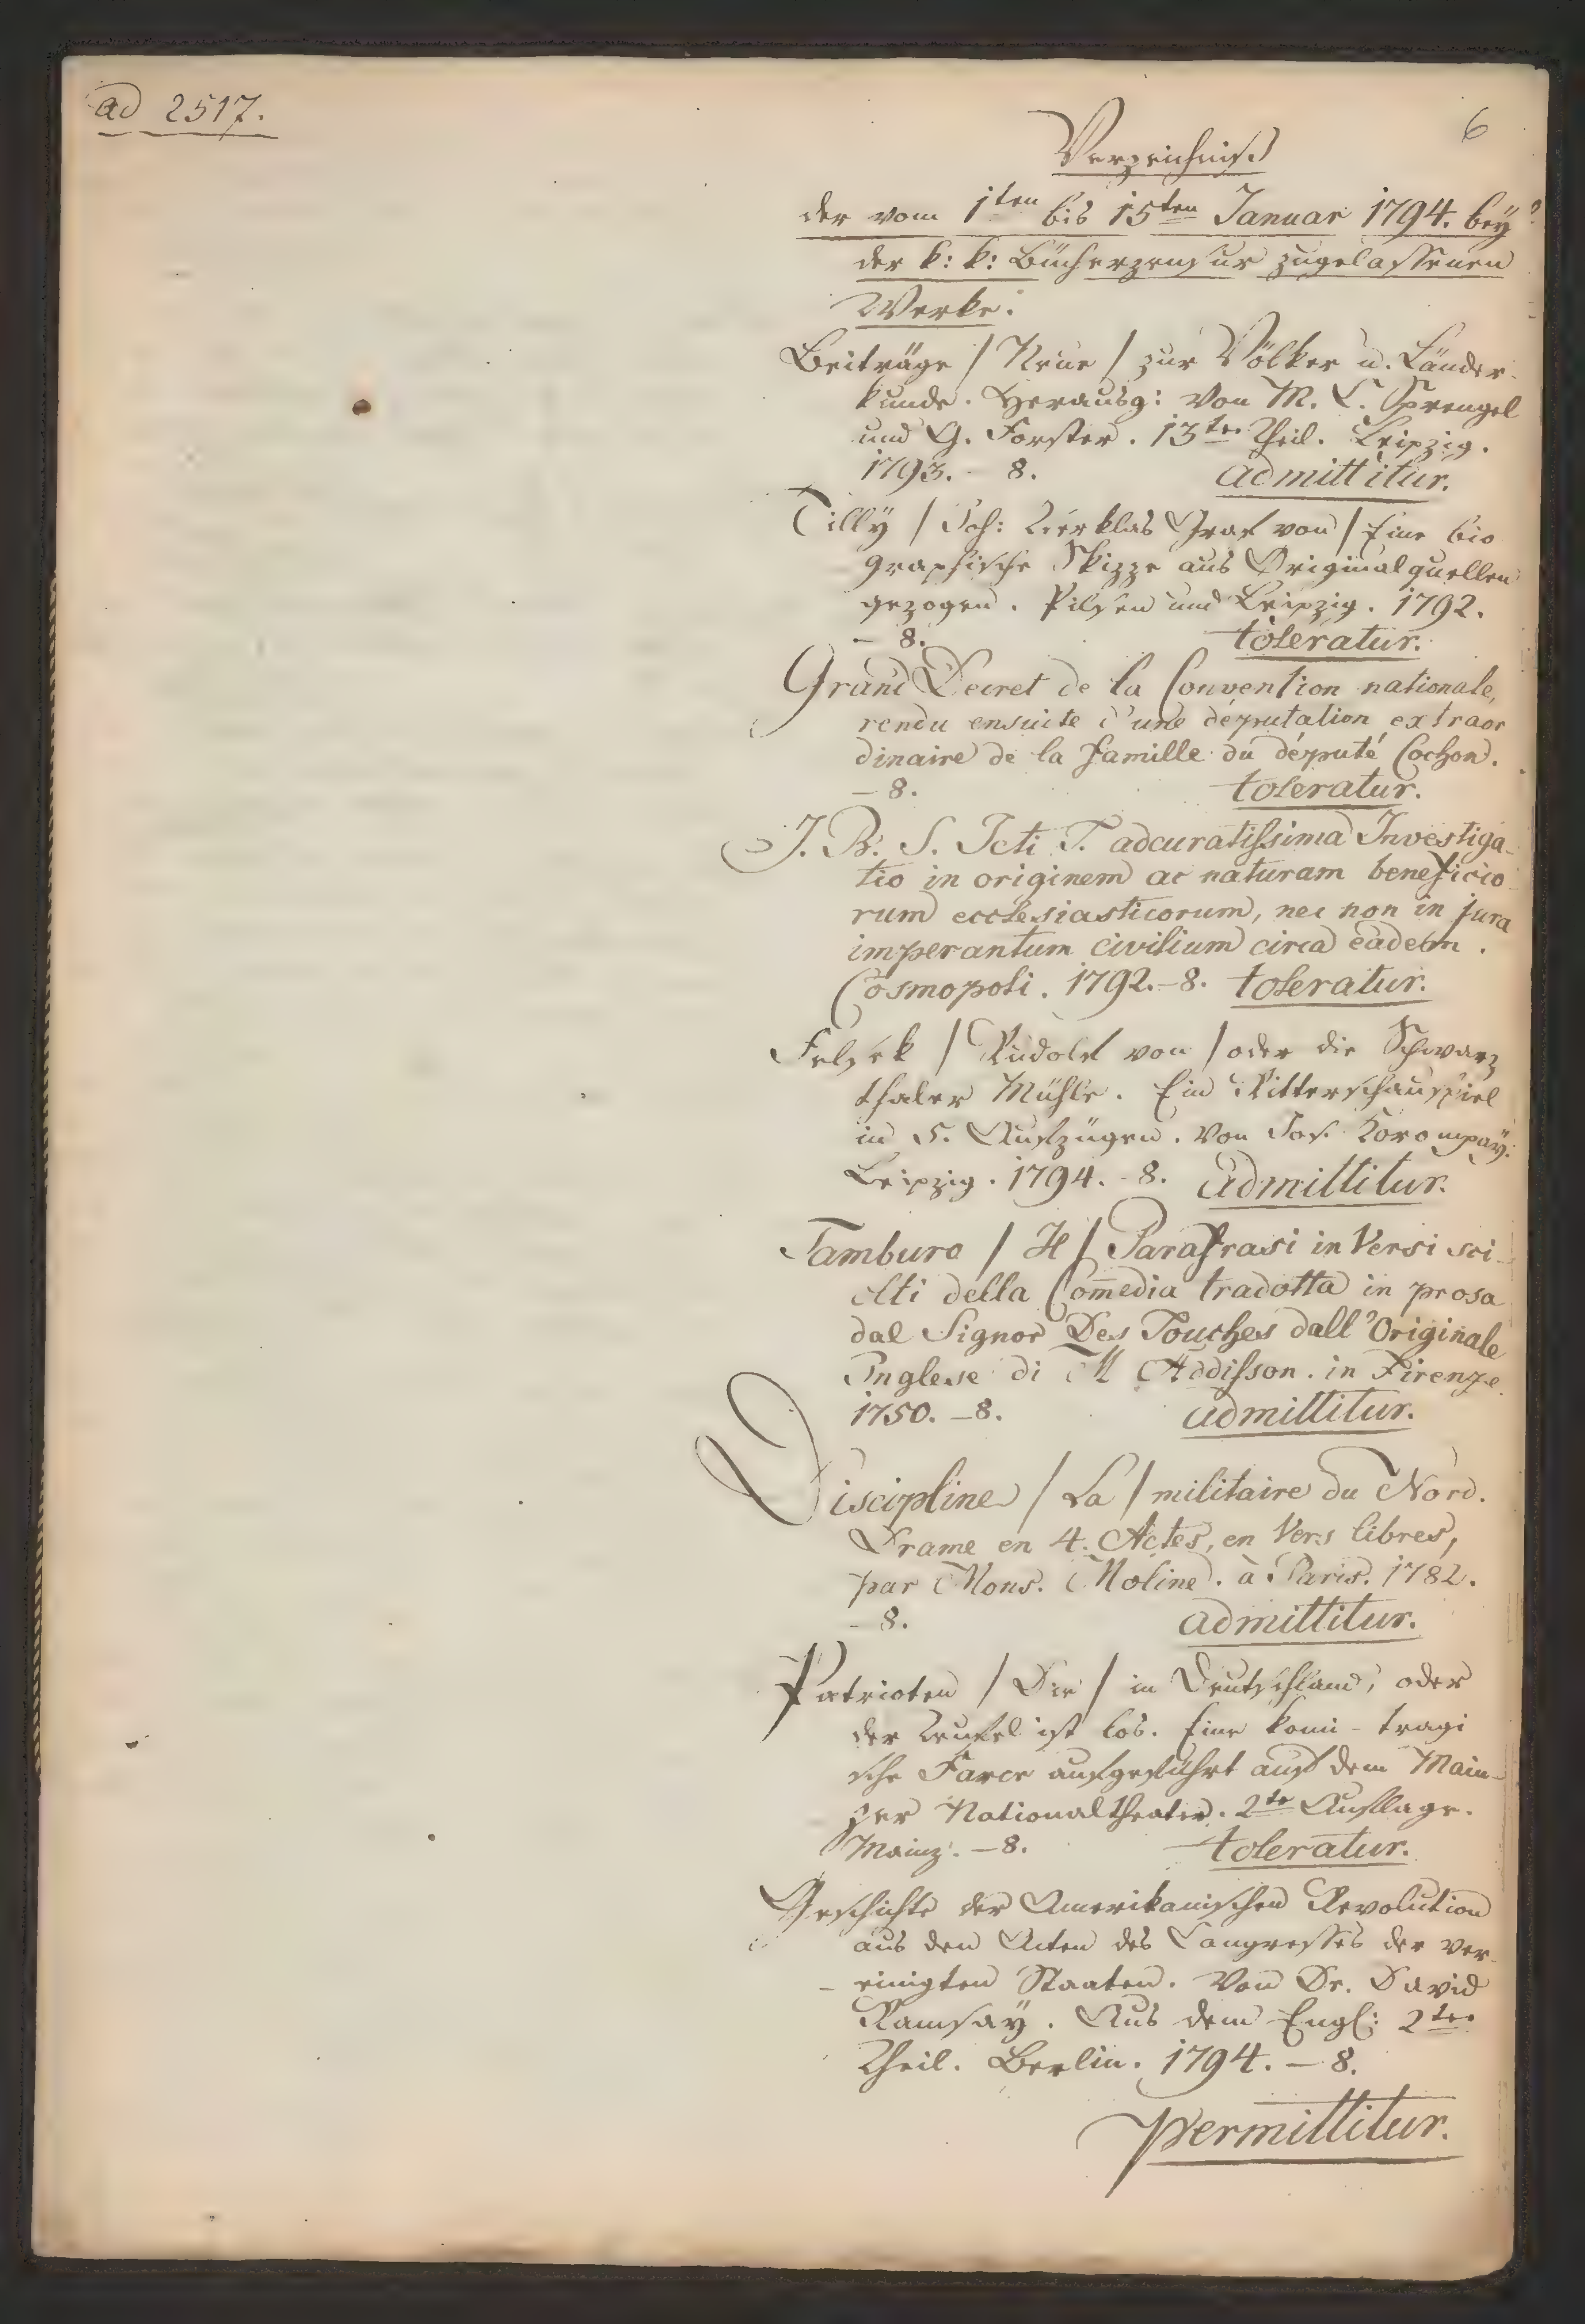 ad 2517.
6
Verzeichniß
der vom 1ten bis 15ten Januar 1794. bey
der k: k: Bücherzensur zugelassenen
Werke.
Beiträge / Neue / zur Völker u. Länder-
kunde. Herausg: von M. C. Sprengel
und G. Forster. 13ter Theil. Leipzig.
1793. - 8. admittitur.
Tilly / Joh: Tzerklas Graf von / Eine bio
graphische Skizze aus Originalquellen
gezogen. Pilsen und Leipzig. 1792.
- 8. toleratur.
Grand Decret de la Convention nationale,
rendu ensuite d'une députation extraor
dinaire de la famille du député Cochon.
- 8. toleratur.
J. B. S. Jcti T. adcuratissima Investiga-
tio in originem ac naturam beneficio-
rum ecclesiasticorum, nec non in jura
imperantum civilium circa eadem.
Cosmopoli. 1792. - 8. toleratur.
Felsek / Rudolf von / oder die Schwarz
thaler Mühle. Ein Ritterschauspiel
in 5. Aufzügen. Von Jos. Korompaÿ.
Leipzig. 1794. - 8. admittitur.
Tamburo / Il / Parafrasi in Versi sci-
olti della Com̄edia tradotta in prosa
dal Signor Des Touches dall'Originale
Inglese di M Addisson. in Firenze
1750. - 8. admittitur.
Discipline / La / militaire du Nord.
Drame en 4. Actes, en Vers libres,
par Mons. Moline. à Paris. 1782.
- 8. admittitur.
Patrioten / Die / in Deutschland, oder
der Teufel ist los. Eine komi-tragi
sche Farce aufgeführt auf dem Main-
zer Nationaltheater. 2te Auflage.
Mainz. - 8. toleratur.
Geschichte der Amerikanischen Revolution
aus den Acten des Congresses der ver-
einigten Staaten. Von Dr. David
Ramsaÿ. Aus dem Engl: 2ter
Theil. Berlin. 1794. - 8.
Permittitur.